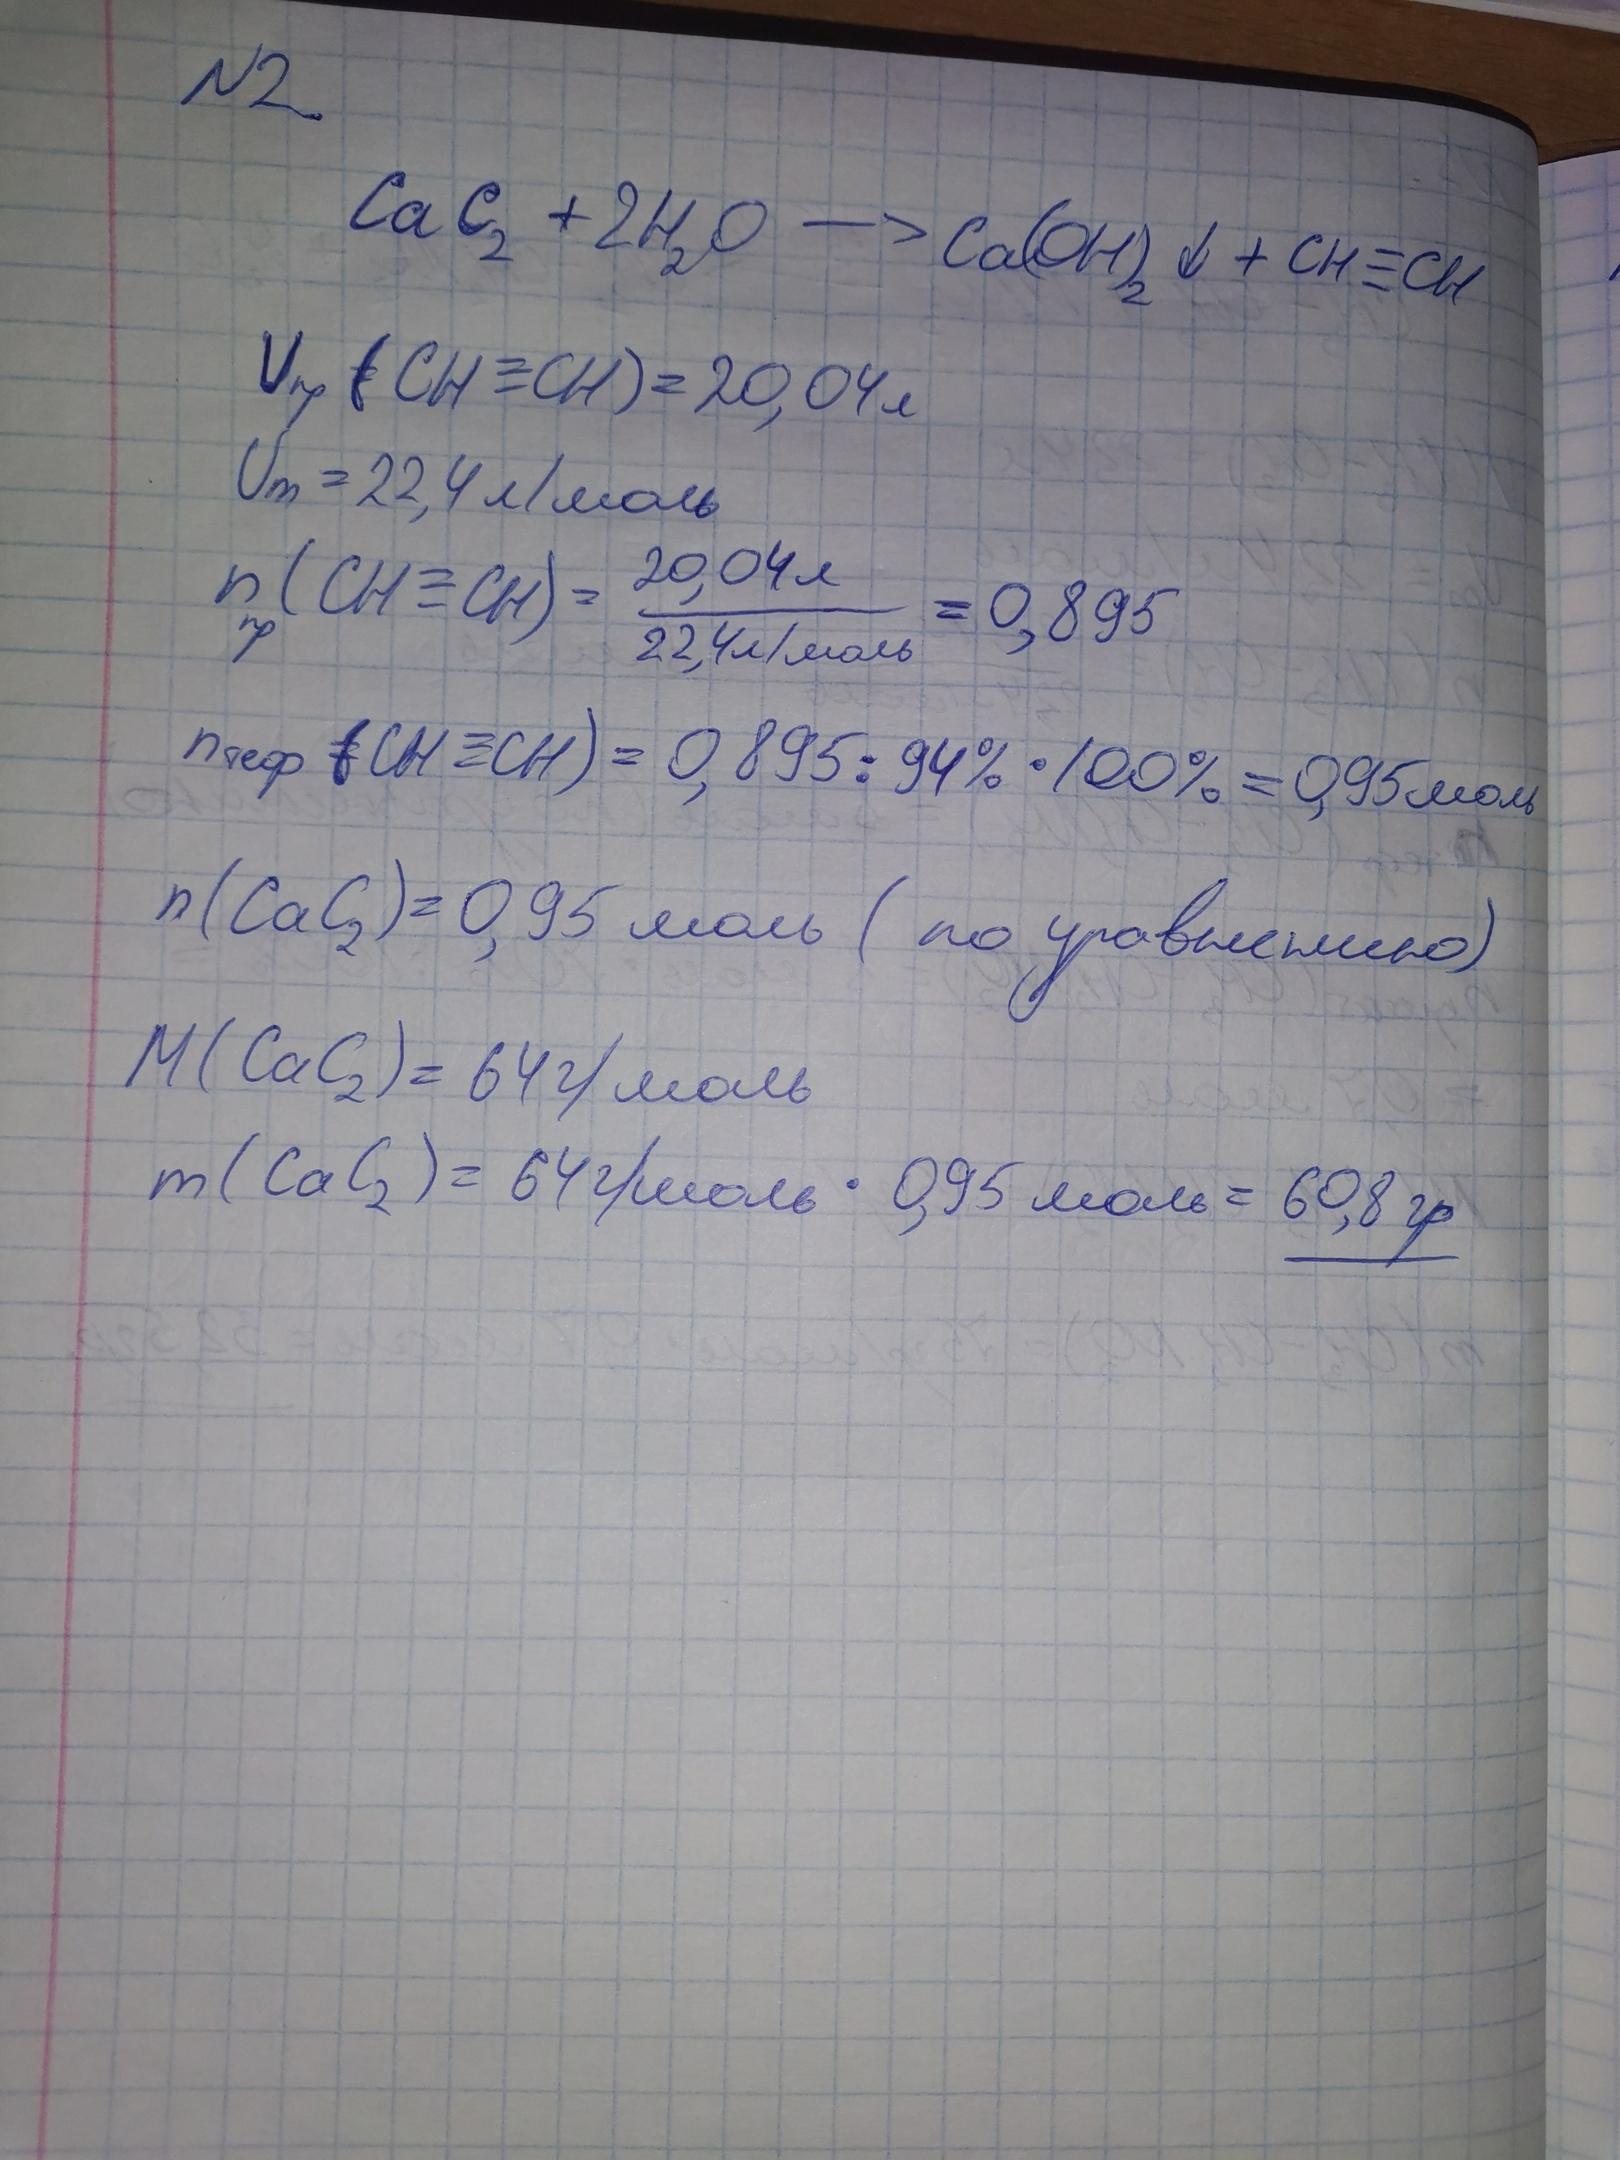 N2.
CaC₂ + 2H₂O —> Ca(OH)₂ ↓ + CH≡CH
Vпр (CH≡CH) = 20,04 л
Vm = 22,4 л/моль
nпр (CH≡CH) = 20,04 л / 22,4 л/моль = 0,895
nтеор (CH≡CH) = 0,895 : 94% · 100% = 0,95 моль
n(CaC₂) = 0,95 моль (по уравнению)
M(CaC₂) = 64 г/моль
m(CaC₂) = 64 г/моль · 0,95 моль = 60,8 гр